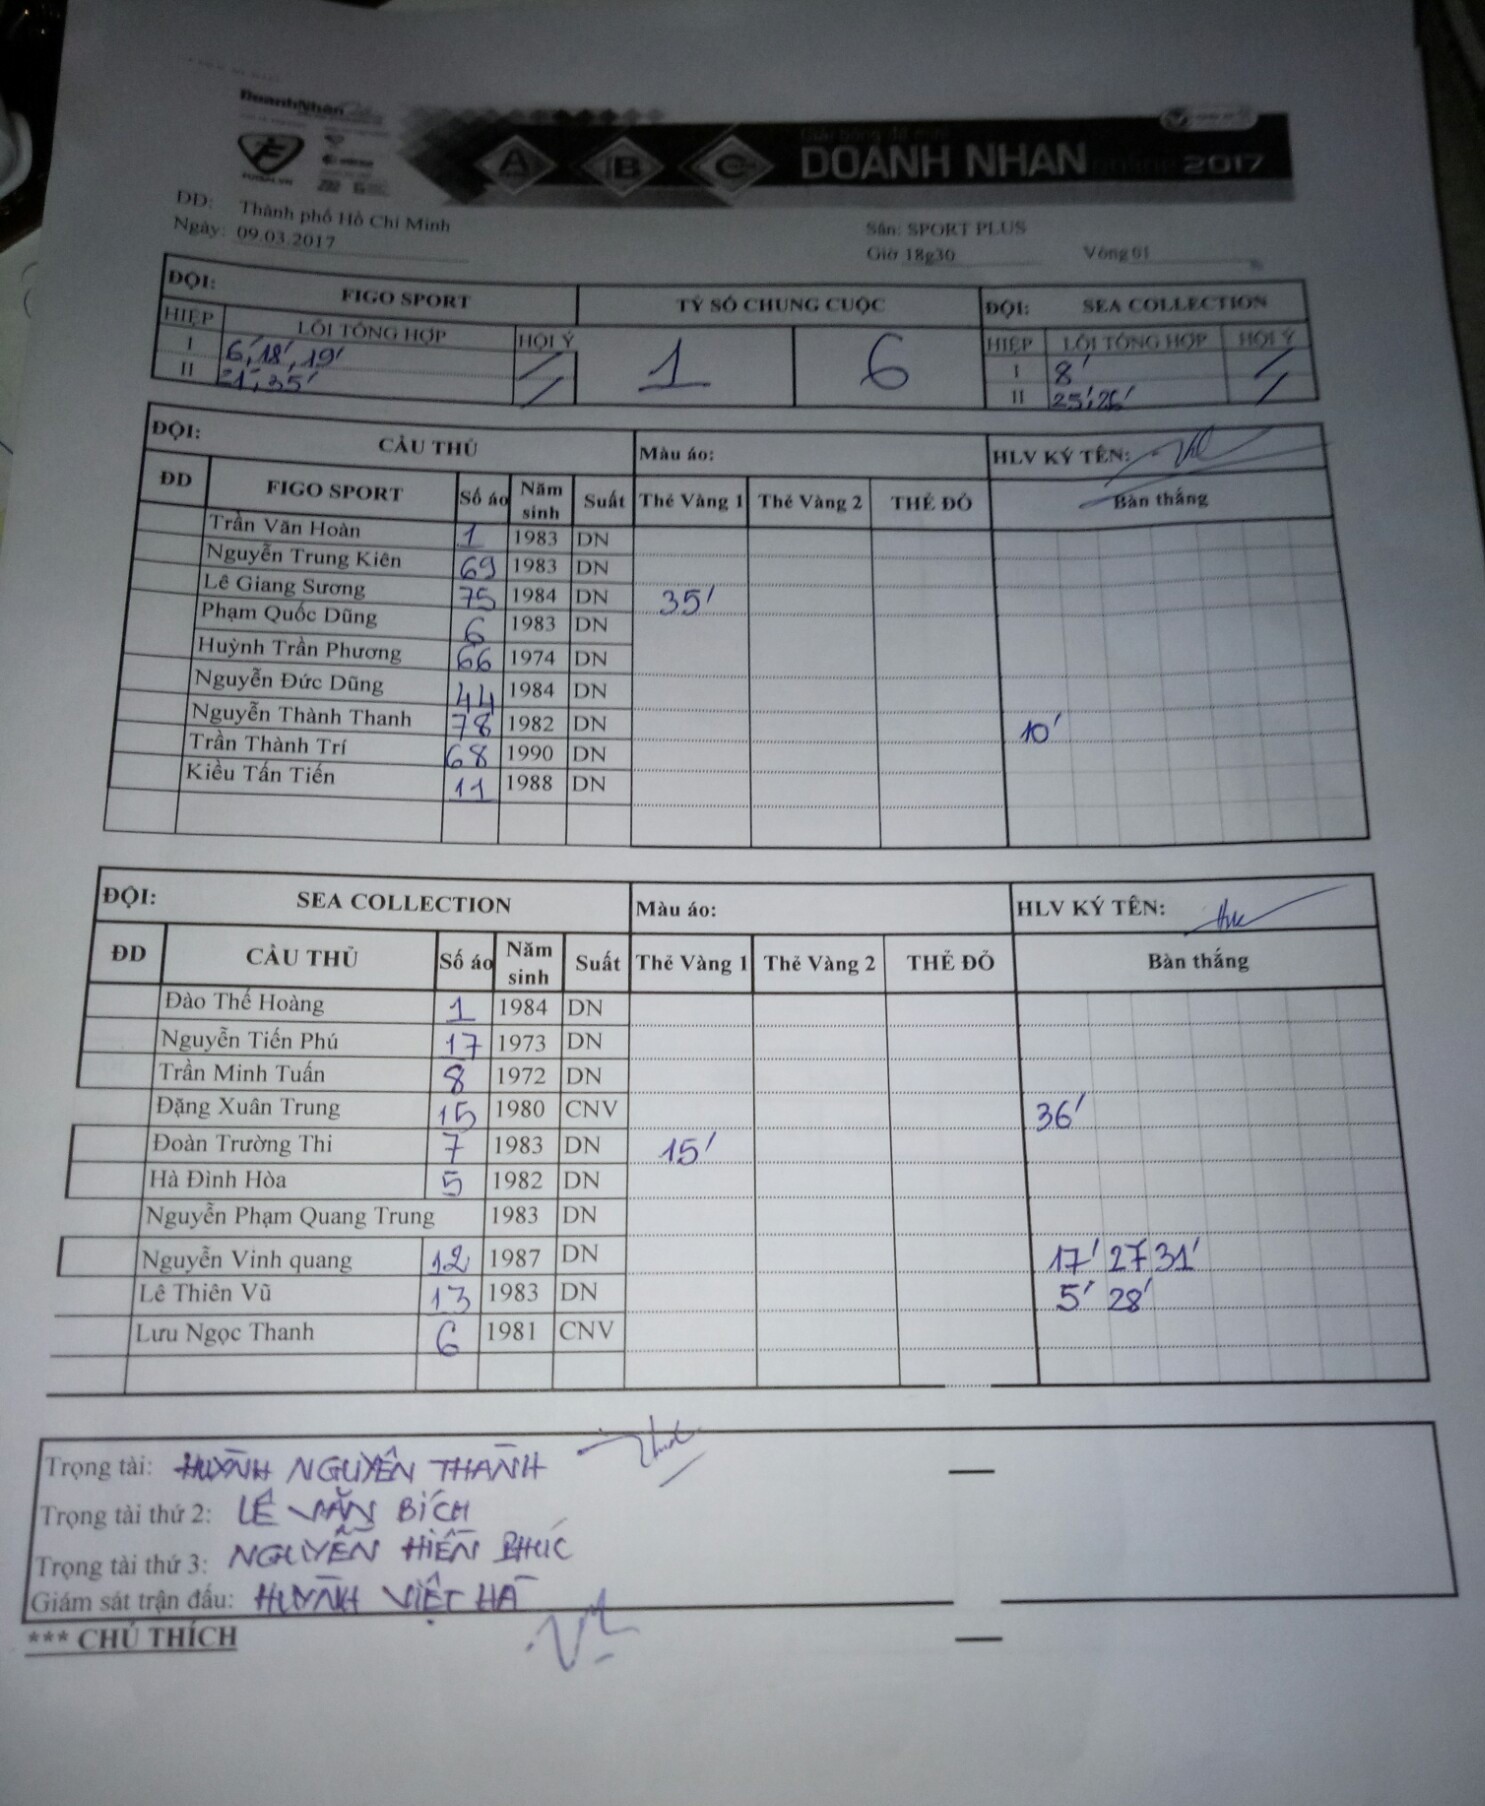 DoanhNhân
FUTSAL.VN
A B C DOANH NHÂN online 2017
DD: Thành phố Hồ Chí Minh
Ngày: 09.03.2017
Sân: SPORT PLUS
Giờ 18g30 Vòng 01
ĐỘI: FIGO SPORT TỶ SỐ CHUNG CUỘC ĐỘI: SEA COLLECTION
HIỆP LỖI TỔNG HỢP HỘI Ý 1 6 HIỆP LỖI TỔNG HỢP HỘI Ý
I 6', 18', 19' I 8'
II 21', 35' II 25', 26'
ĐỘI: CẦU THỦ Màu áo: HLV KÝ TÊN:
ĐD FIGO SPORT Số áo Năm sinh Suất Thẻ Vàng 1 Thẻ Vàng 2 THẺ ĐỎ Bàn thắng
Trần Văn Hoàn 1 1983 DN
Nguyễn Trung Kiên 69 1983 DN
Lê Giang Sương 75 1984 DN 35'
Phạm Quốc Dũng 6 1983 DN
Huỳnh Trần Phương 66 1974 DN
Nguyễn Đức Dũng 44 1984 DN
Nguyễn Thành Thanh 78 1982 DN 10'
Trần Thành Trí 68 1990 DN
Kiều Tấn Tiến 11 1988 DN
ĐỘI: SEA COLLECTION Màu áo: HLV KÝ TÊN:
ĐD CẦU THỦ Số áo Năm sinh Suất Thẻ Vàng 1 Thẻ Vàng 2 THẺ ĐỎ Bàn thắng
Đào Thế Hoàng 1 1984 DN
Nguyễn Tiến Phú 17 1973 DN
Trần Minh Tuấn 8 1972 DN
Đặng Xuân Trung 15 1980 CNV 36'
Đoàn Trường Thi 7 1983 DN 15'
Hà Đình Hòa 5 1982 DN
Nguyễn Phạm Quang Trung 1983 DN
Nguyễn Vinh quang 12 1987 DN 17' 27' 31'
Lê Thiên Vũ 13 1983 DN 5' 28'
Lưu Ngọc Thanh 6 1981 CNV
Trọng tài: HUỲNH NGUYÊN THÀNH
Trọng tài thứ 2: LÊ VĂN BÍCH
Trọng tài thứ 3: NGUYỄN HIỀN PHÚC
Giám sát trận đấu: HUỲNH VIỆT HÀ
*** CHÚ THÍCH